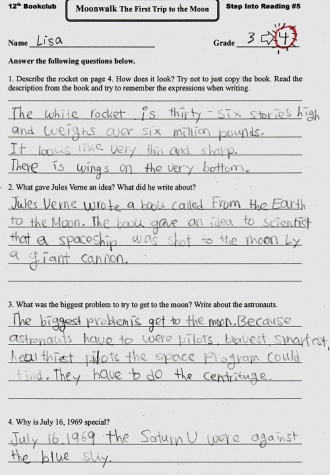 12th Bookclub Moonwalk The First Trip to the Moon Step Into Reading #5
Name Lisa Grade 3 ⇨ 4
Answer the following questions below.
1. Describe the rocket on page 4. How does it look? Try not to just copy the book. Read the
description from the book and try to remember the expressions when writing.
The white rocket is thirty-six stories high
and weighs over six million pounds.
It looks like very thin and sharp.
There is wings on the very bottom.
2. What gave Jules Verne an idea? What did he write about?
Jules Verne wrote a book called From the Earth
to the Moon. The book gave an idea to scientist
that a spaceship was shot to the moon by
a giant cannon.
3. What was the biggest problem to try to get to the moon? Write about the astronauts.
The biggest problem is get to the moon. Because
astronauts have to were pilots, bravest, smartest,
healthiest pilots the space program could
find. They have to do the centrifuge.
4. Why is July 16, 1969 special?
July 16.1969 the Saturn V were against
the blue sky.